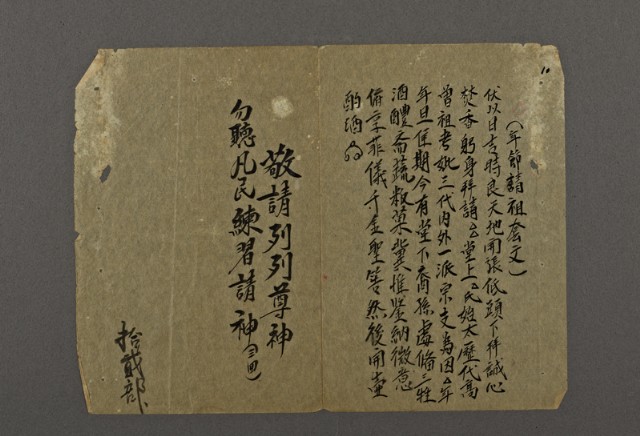 (年節請祖套文)
伏以日吉時良天地開張低頭下拜誠心
焚香躬身拜請△堂上△氏姓太歷代高
曾祖考妣三代內外一派宗支為因△年
年旦佳期今有堂下裔孫虔備三牲
酒醴齋蔬粄菓冀惟鑒納微意
備享菲儀千金聖筶然後開壺
酌酒
敬請列列尊神
勿聽凡民練習請神
拾貳部